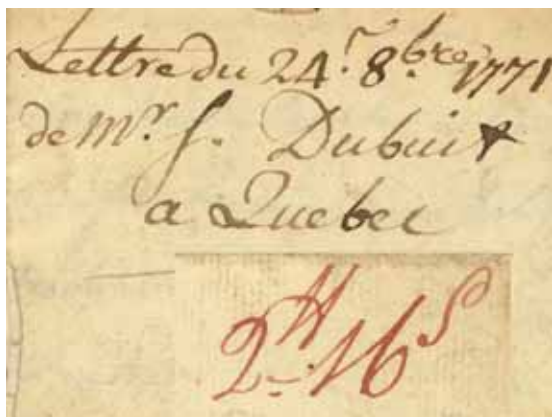 Lettre du 24.r 8.bre 1771
de Mr. J. Dubuit
a Quebec
2H 16s